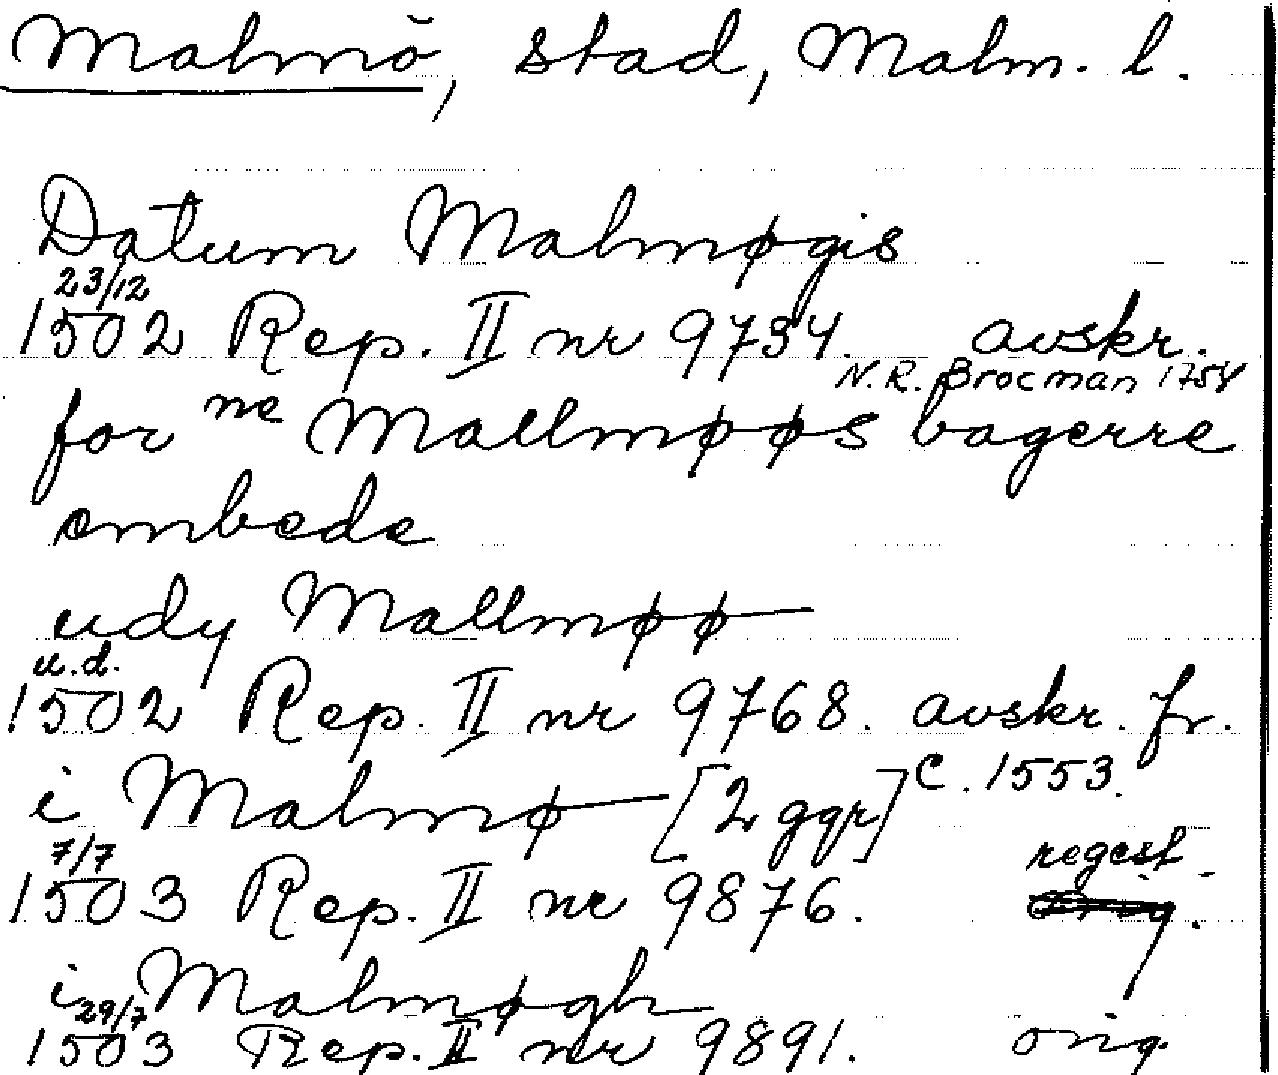 Malmö, stad, Malm. l.
Datum Malmøgis
23/12
1502 Rep. II nr 9734. avskr.
N.R. Brocman 1758
for ne Mallmøøs bagerre
embede
udy Mallmøø
u.d.
1502 Rep. II nr 9768. avskr. fr.
C. 1553.
i Malmø [2 ggr]
7/7
1503 Rep. II nr 9876. regest.
i Malmøgh
29/7
1503 Rep. II nr 9891. orig.